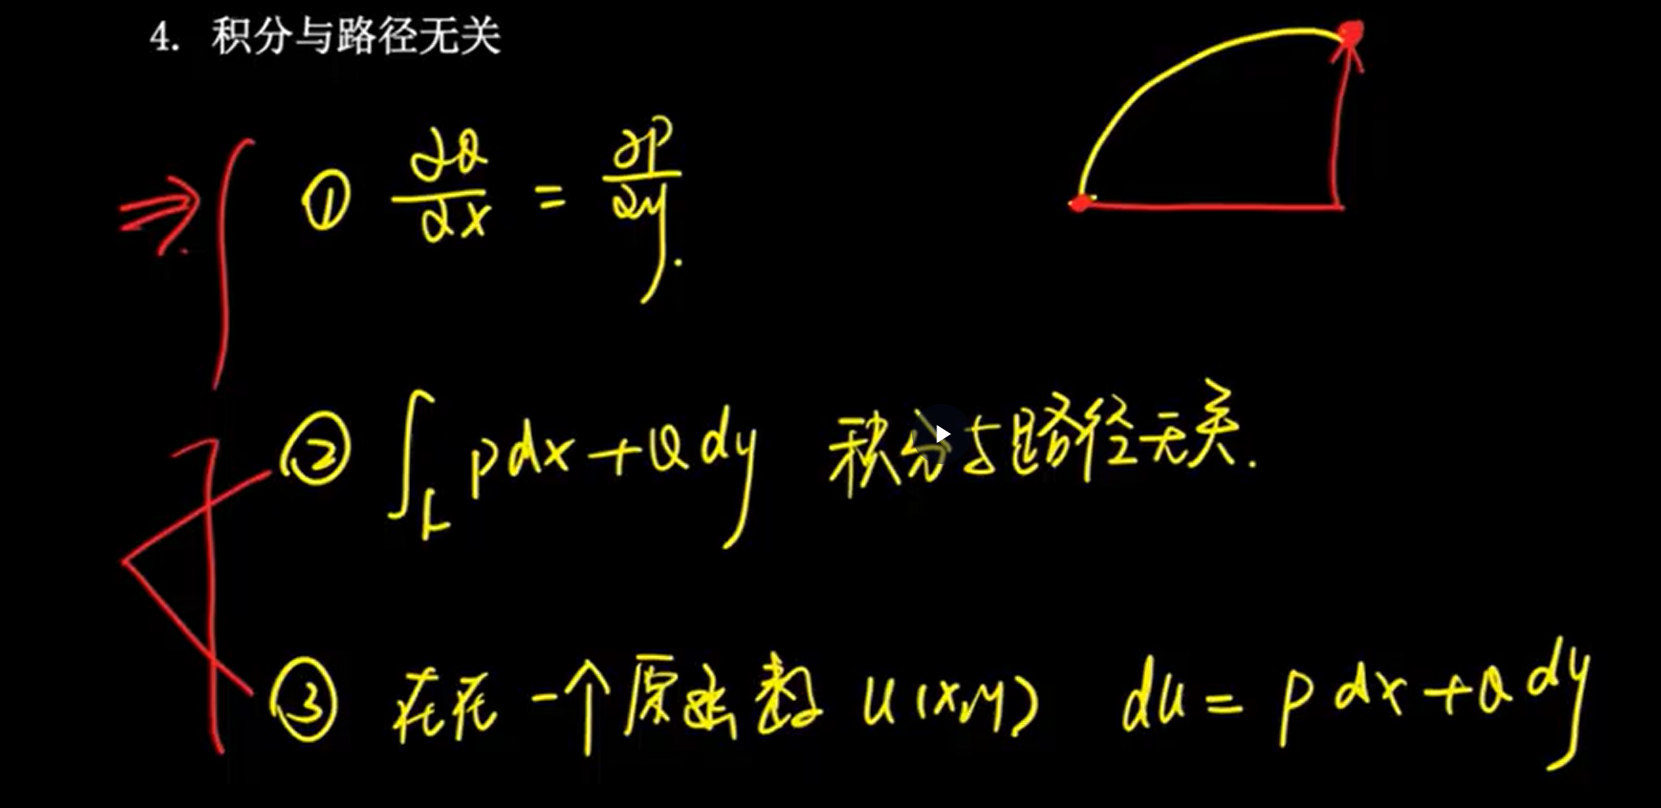 4. 积分与路径无关
① ∂Q/∂x = ∂P/∂y.
② ∫_L Pdx+Qdy 积分与路径无关.
③ 存在一个原函数 u(x,y) du = Pdx+Qdy